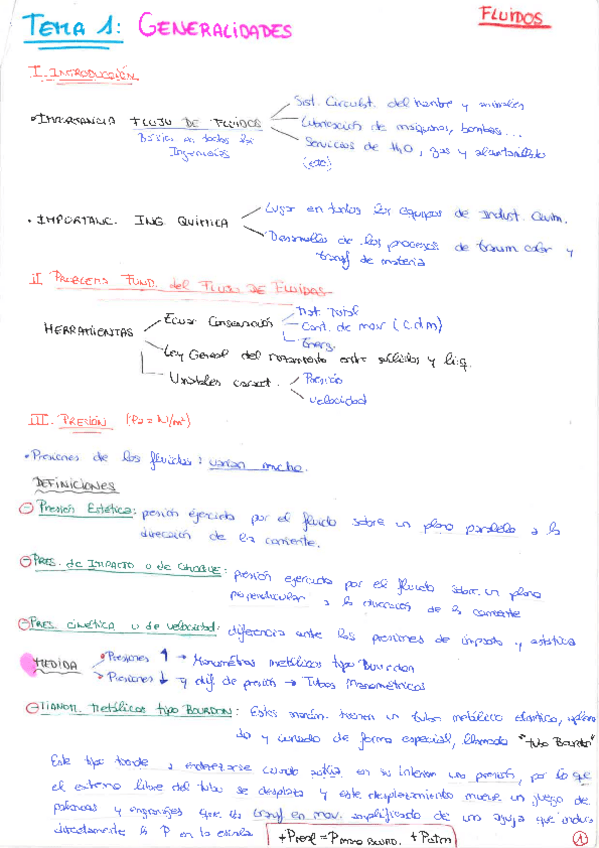 FLUIDOS
TEMA 1: GENERALIDADES
I. INTRODUCCIÓN
• IMPORTANCIA FLUJO DE FLUIDOS
Básico en todas la
Ingenierías
Sist. Circulat. del hombre y animales
Lubricación de máquinas, bombas...
Servicios de H2O, gas y alcantarillado
(etc)
• IMPORTANC. ING QUÍMICA
Lugar en todos los equipos de Indust. Quím.
Desarrollo de los procesos de transm calor y
transf de materia
II PROBLEMA FUND. del FLUJO DE FLUIDOS
HERRAMIENTAS
Ecuac Conservación
Mat. Total
Cant. de mov (c.d.m)
Energ.
Ley General del rozamiento entre sólidos y líq.
Variables caract.
Presión
Velocidad
III. PRESIÓN (Pa = N/m²)
• Presiones de los fluidos: varían mucho.
DEFINICIONES
- Presión Estática: presión ejercida por el fluido sobre un plano paralelo a la
dirección de la corriente.
- PRES. de IMPACTO o de CHOQUE: presión ejercida por el fluido sobre un plano
perpendicular a la dirección de la corriente
- PRES. cinética o de velocidad: diferencia entre las presiones de impacto y estática
MEDIDA
• Presiones ↑ → Manométros metálicos tipo Bourdon
• Presiones ↓ y dif. de presión → Tubos Manométricos
- MANOM. Metálicos tipo BOURDON: Estos manóm. tienen un tubo metálico elástico, aplana
do y curvado de forma especial, llamado "tubo Bourdon"
Este tipo tiende a enderezarse cuando actúa en su interior una presión, por lo que
el extremo libre del tubo se desplaza y este desplazamiento mueve un juego de
palancas y engranajes que se transf en mov. amplificado de una aguja que indica
directamente la P en la escala
+ Pres = P mano BOURD. + Patm
1